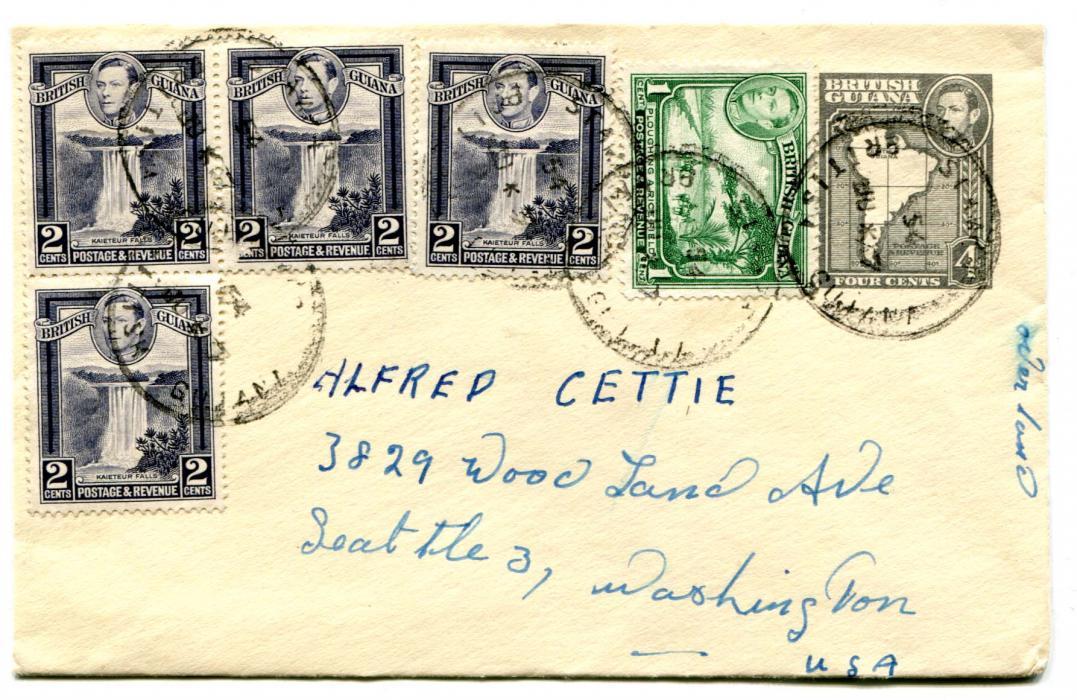 BRITISH GUIANA
KAIETEUR FALLS
2 CENTS POSTAGE & REVENUE 2 CENTS
BRITISH GUIANA
KAIETEUR FALLS
2 CENTS POSTAGE & REVENUE 2 CENTS
BRITISH GUIANA
KAIETEUR FALLS
2 CENTS POSTAGE & REVENUE 2 CENTS
BRITISH GUIANA
1 CENT PLOUGHING A RICE FIELD 1 CENT
POSTAGE & REVENUE
BRITISH
GUIANA
4
FOUR CENTS
BRITISH GUIANA
KAIETEUR FALLS
2 CENTS POSTAGE & REVENUE 2 CENTS
ALFRED CETTIE
3829 Wood Land Ave
Seattle 3,
Washington
USA